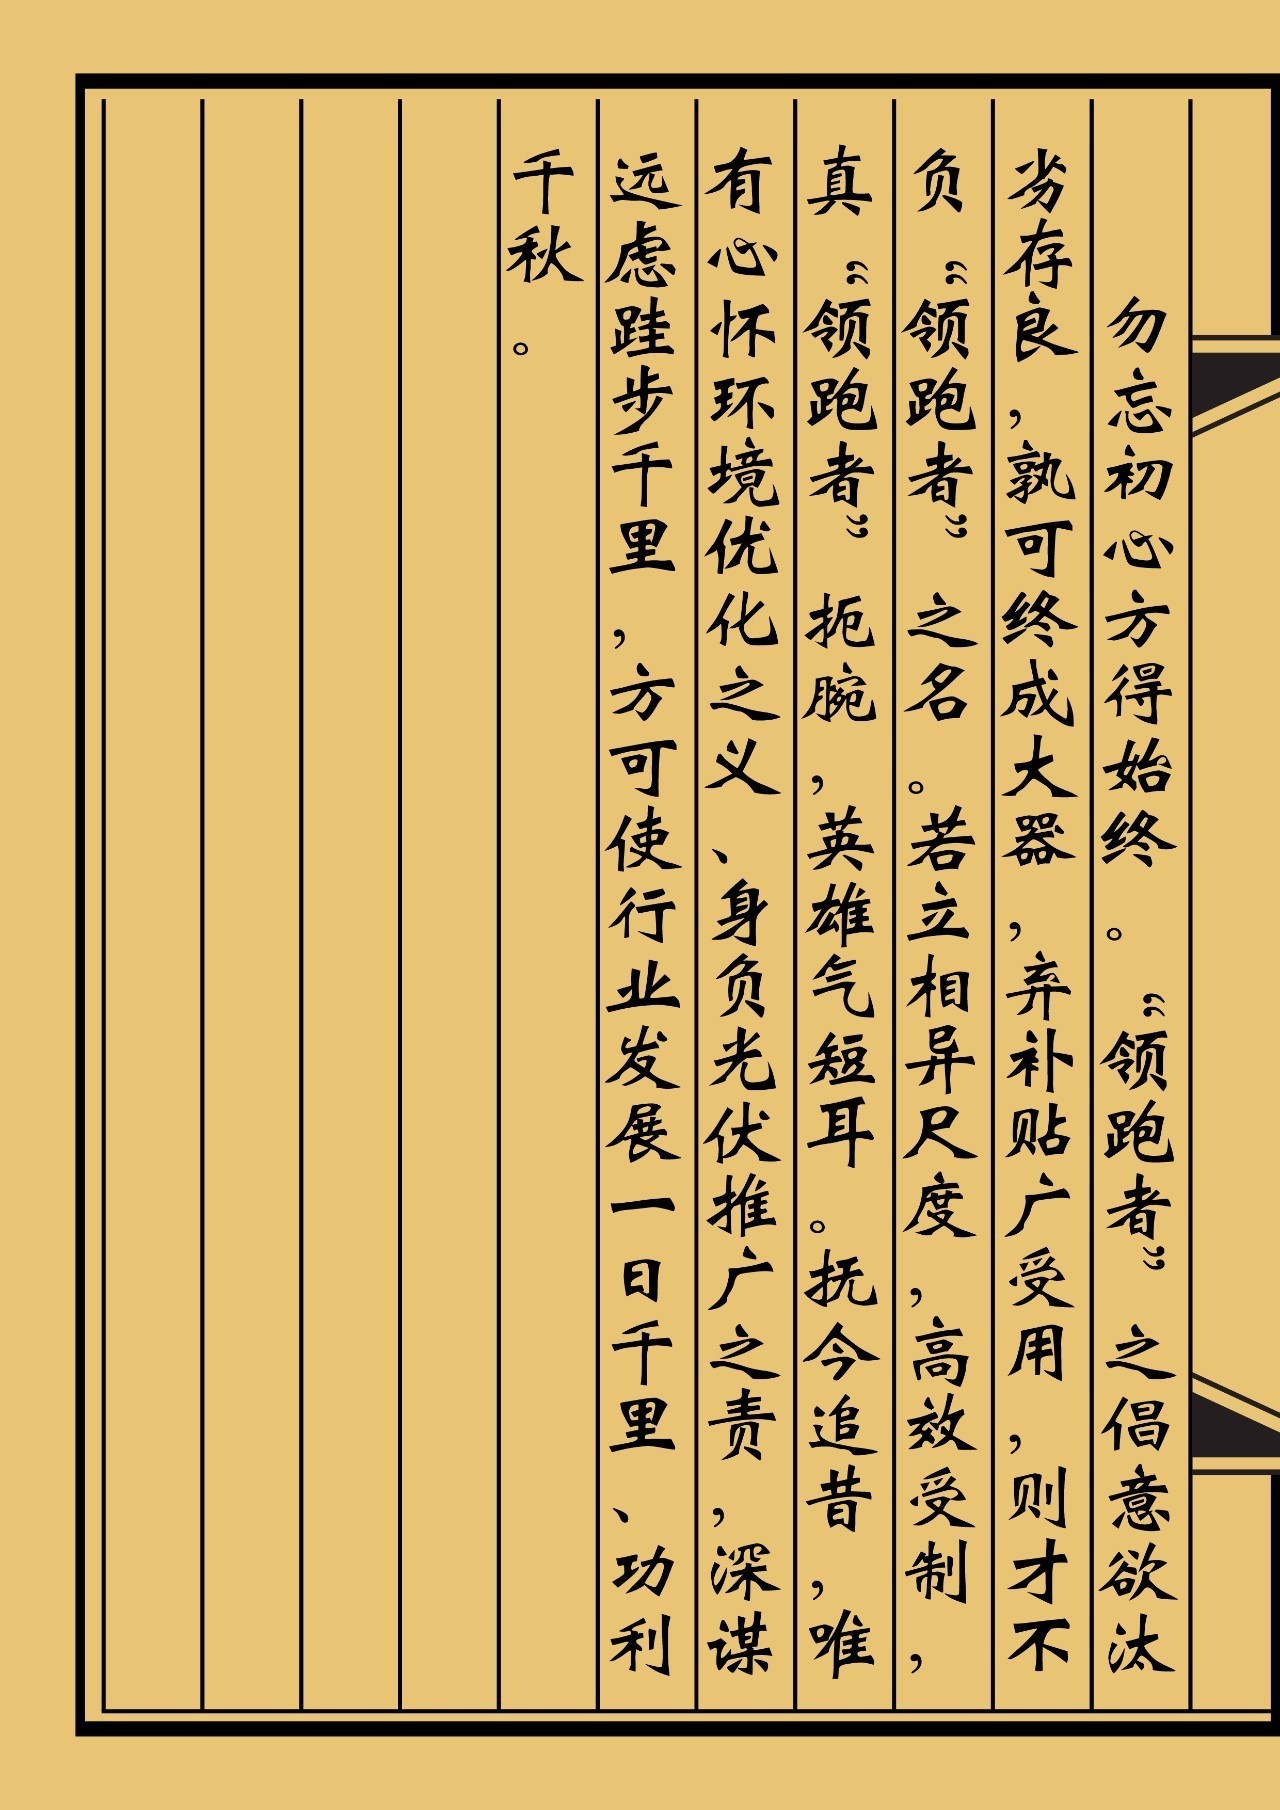 勿忘初心方得始终。“领跑者”之倡意欲汰
劣存良，孰可终成大器，弃补贴广受用，则才不
负“领跑者”之名。若立相异尺度，高效受制，
真“领跑者”扼腕，英雄气短耳。抚今追昔，唯
有心怀环境优化之义、身负光伏推广之责，深谋
远虑跬步千里，方可使行业发展一日千里、功利
千秋。